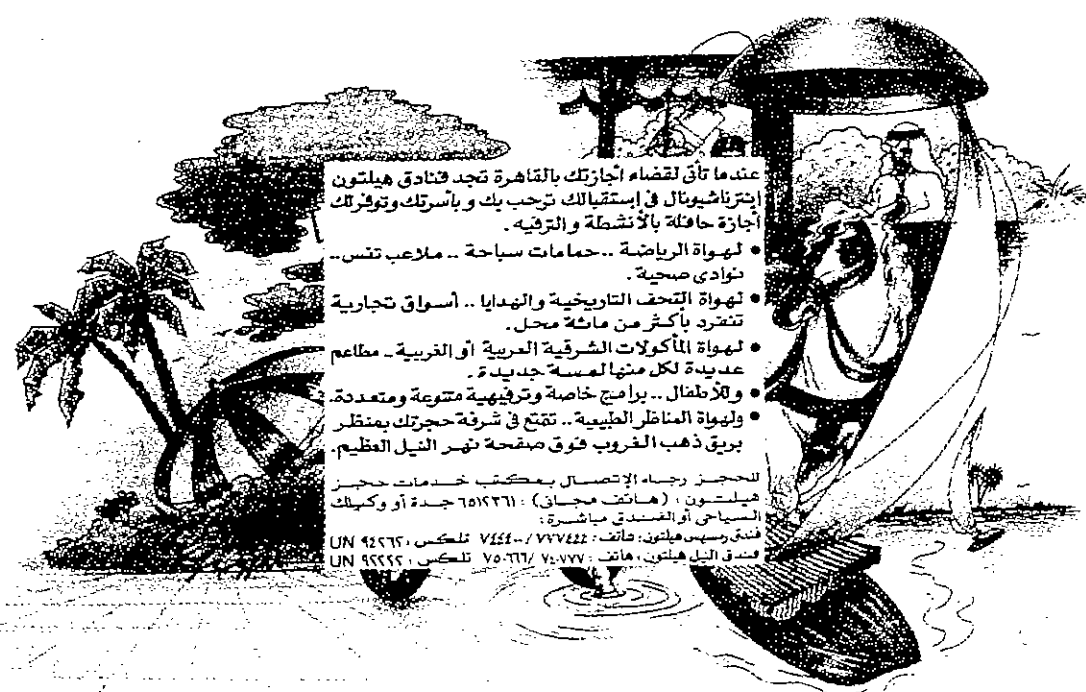 عندما تأتى لقضاء اجازتك بالقاهرة تجد فنادق هيلتون
إينترناشيونال فى إستقبالك ترحب بك وبأسرتك وتوفرلك
أجازة حافلة بالأنشطة والترفيه.
• لهواة الرياضة .. حمامات سباحة .. ملاعب تنس ..
نوادى صحية.
• لهواة التحف التاريخية والهدايا .. أسواق تجارية
تنفرد بأكثر من مائة محل.
• لهواة المأكولات الشرقية العربية او الغربية .. مطاعم
عديدة لكل منها لمسة جديدة.
• وللأطفال .. برامج خاصة وترفيهية متنوعة ومتعددة.
• ولهواة المناظر الطبيعية .. تمتع فى شرفة حجرتك بمنظر
بريق ذهب الغروب فوق صفحة نهر النيل العظيم.
للحجز رجاء الإتصال بمكتب خدمات حجز
هيلتون : (هاتف مجانى) : ٦٥١٢٣٦١ جدة أو وكيلك
السياحى أو الفندق مباشرة :
فندق رمسيس هيلتون: هاتف : ٧٧٧٤٤٤ / تلكس : ٩٤٢٦٢ UN
فندق النيل هيلتون ، هاتف : ٧٤٠٧٧٧ / ٧٥٠٦٦٦ تلكس : ٩٢٢٢٢ UN